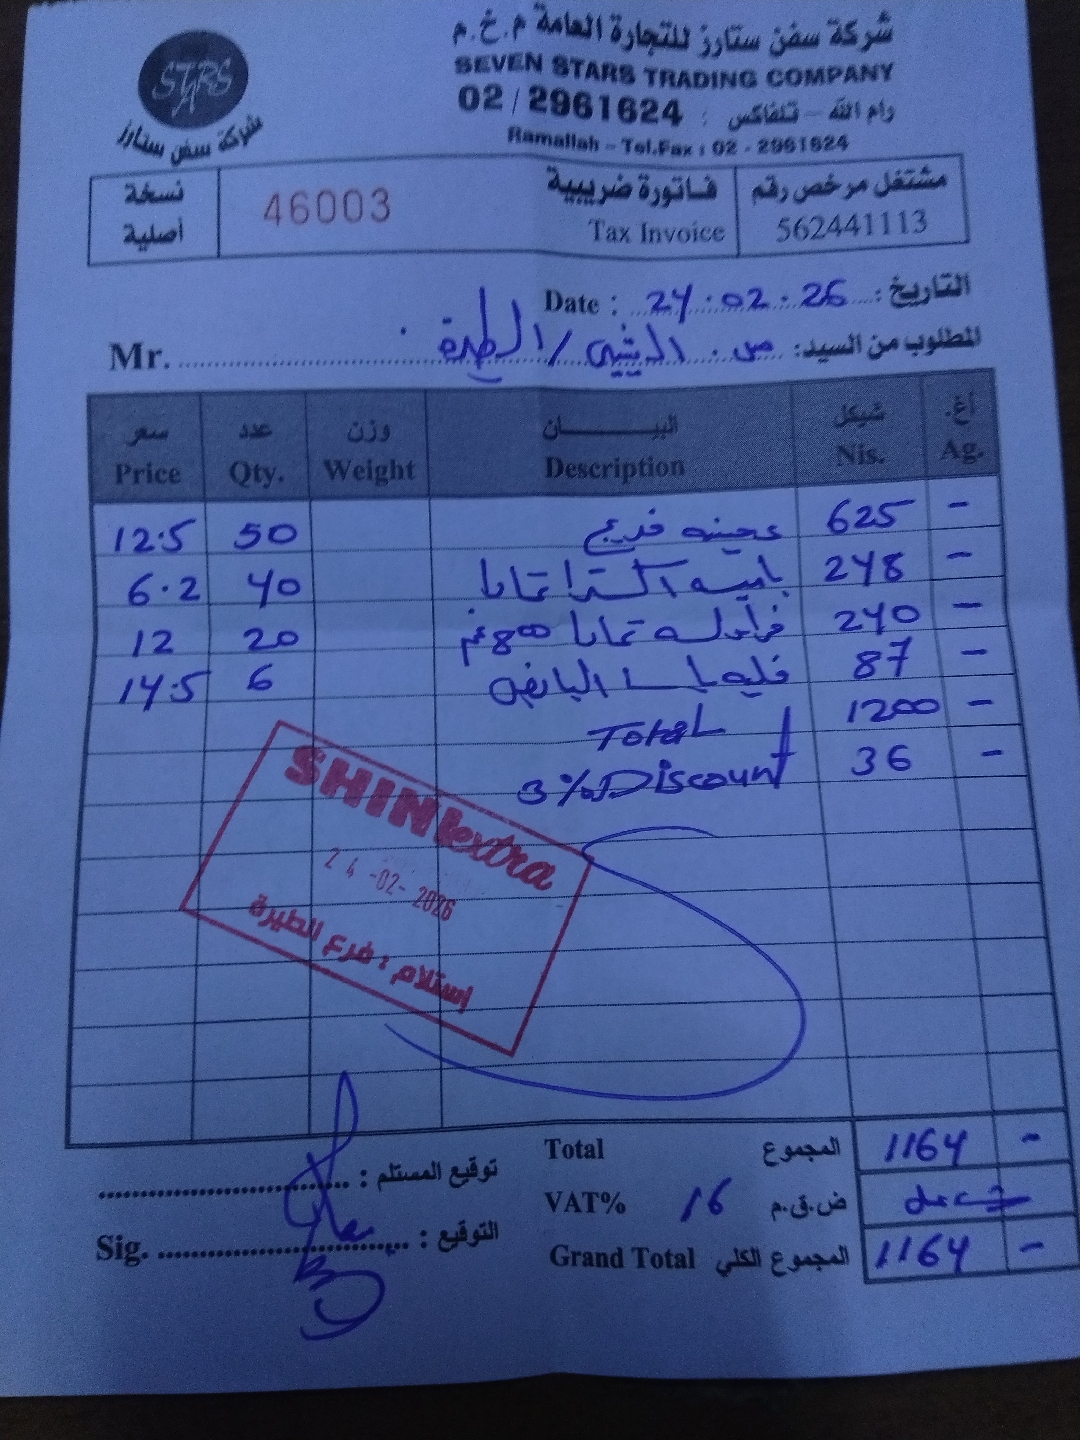 شركة سفن ستارز للتجارة العامة م.خ.م
SEVEN STARS TRADING COMPANY
رام الله – تلفاكس : 02 / 2961624
Ramallah – Tel.Fax : 02 - 2961624
STARS
شركة سفن ستارز
مشتغل مرخص رقم 562441113
فاتورة ضريبية Tax Invoice
46003
نسخة أصلية
التاريخ: 24.02.26 : Date
المطلوب من السيد: ص. / الطيرة Mr.
أغ. شيكل البيـــــــان وزن عدد سعر
Ag. Nis. Description Weight Qty. Price
- 625 عجينه 50 12.5
- 248 باميه اكسترا تمارا 40 6.2
- 240 فراوله تمارا 800غم 20 12
- 87 6 14.5
- 1200 Total
- 36 3% Discount
SHINI extra
24-02-2026
إستلام : فرع الطيرة
Total المجموع 1164 -
VAT% 16 ض.ق.م
Grand Total المجموع الكلي 1164 -
توقيع المستلم :
Sig. التوقيع :